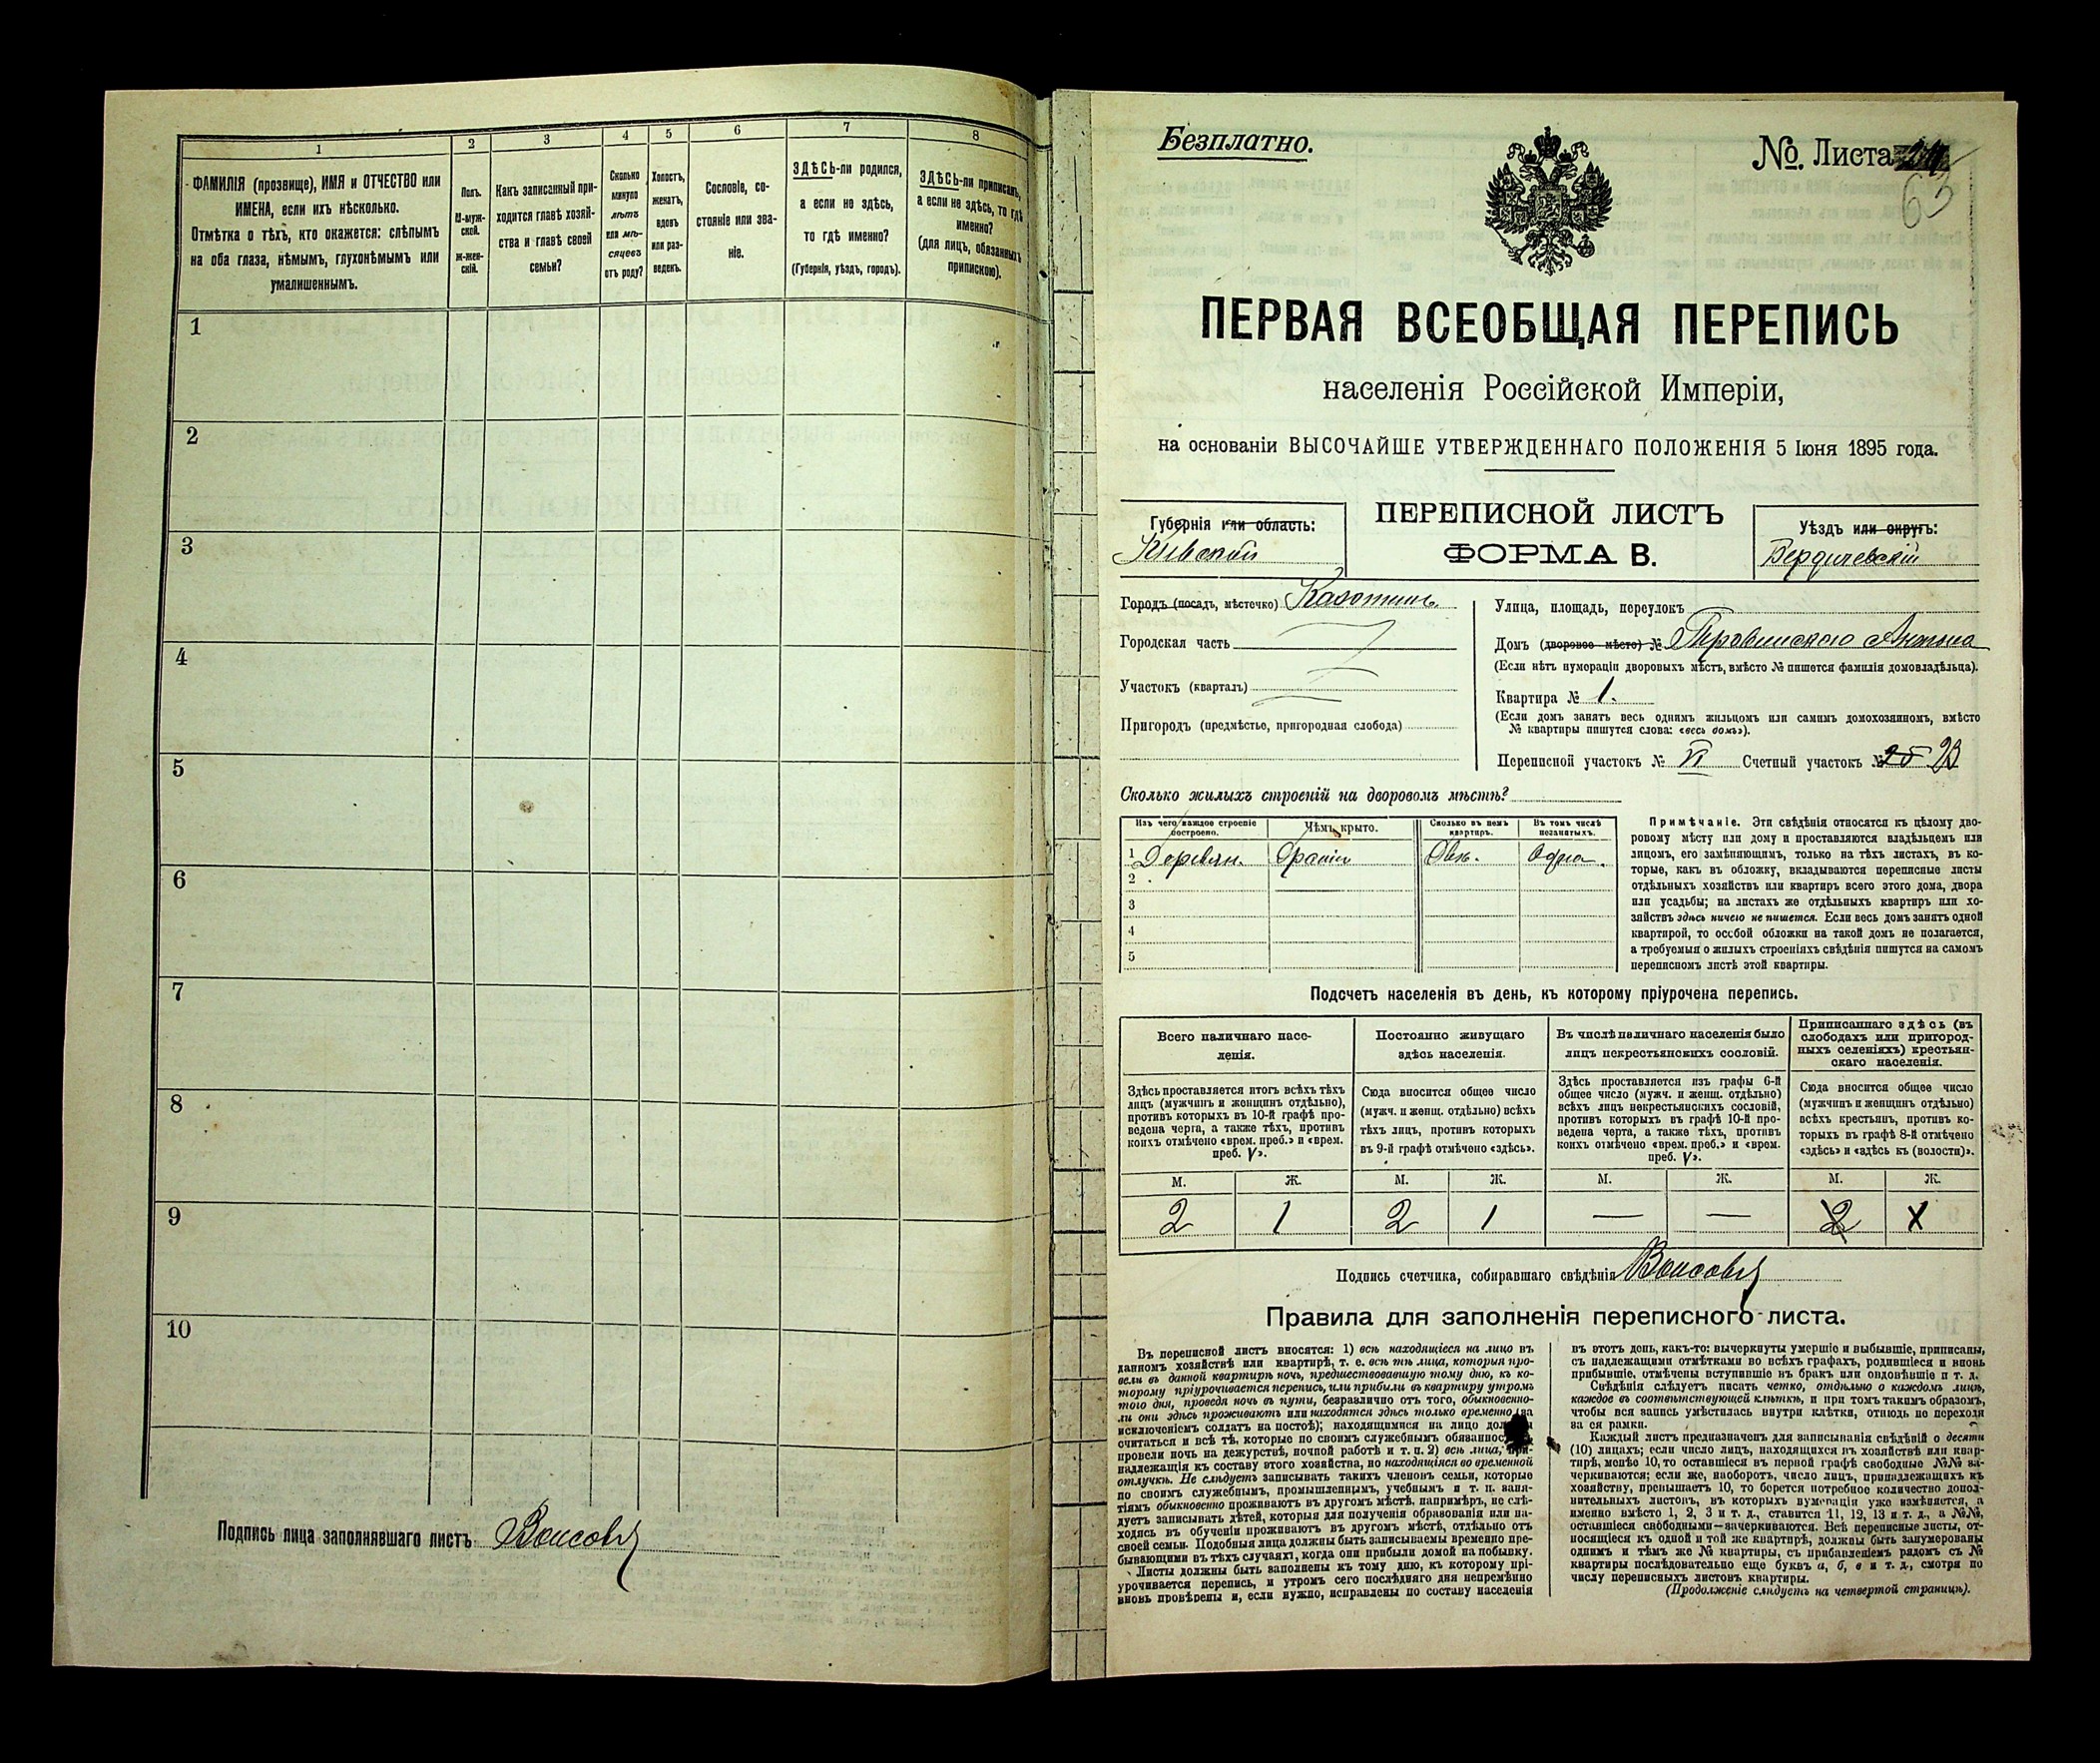 1
2
3
4
5
6
7
8
ФАМИЛІЯ (прозвище), ИМЯ и ОТЧЕСТВО или
ИМЕНА, если ихъ нѣсколько.
Отмѣтка о тѣхъ, кто окажется: слѣпымъ
на оба глаза, нѣмымъ, глухонѣмымъ или
умалишеннымъ.
Полъ.
М-муж-
ской.
Ж-жен-
скій.
Какъ записанный при-
ходится главѣ хозяй-
ства и главѣ своей
семьи?
Сколько
минуло
лѣтъ
или мѣ-
сяцевъ
отъ роду?
Холостъ,
женатъ,
вдовъ
или раз-
веденъ.
Сословіе, со-
стояніе или зва-
ніе.
ЗДѢСЬ-ли родился,
а если не здѣсь,
то гдѣ именно?
(Губернія, уѣздъ, городъ).
ЗДѢСЬ-ли приписанъ,
а если не здѣсь, то гдѣ
именно?
(для лицъ, обязанныхъ
припискою).
1
2
3
4
5
6
7
8
9
10
Подпись лица заполнявшаго листъ
Безплатно.
№. Листа
63
ПЕРВАЯ ВСЕОБЩАЯ ПЕРЕПИСЬ
населенія Россійской Имперіи,
на основаніи ВЫСОЧАЙШЕ УТВЕРЖДЕННАГО ПОЛОЖЕНІЯ 5 Іюня 1895 года.
Губернія или область:
Кіевскій
ПЕРЕПИСНОЙ ЛИСТЪ
ФОРМА В.
Уѣздъ или округъ:
Бердичевскій
Городъ (посадъ, мѣстечко) Казатинъ
Городская часть
Участокъ (кварталъ)
Пригородъ (предмѣстье, пригородная слобода)
Улица, площадь, переулокъ
Домъ (дворовое мѣсто) №
(Если нѣтъ нумораціи дворовыхъ мѣстъ, вмѣсто № пишется фамилія домовладѣльца).
Квартира № 1.
(Если домъ занятъ весь однимъ жильцомъ или самимъ домохозяиномъ, вмѣсто
№ квартиры пишутся слова: «весь домъ»).
Переписной участокъ № VI Счетный участокъ № 25 23
Сколько жилыхъ строеній на дворовомъ мѣстѣ?
Изъ чего каждое строеніе
построено.
Чѣмъ крыто.
Сколько въ немъ
квартиръ.
Въ томъ числѣ
незанятыхъ.
1 Деревян. Дранью Двѣ. Одна.
2
3
4
5
Примѣчаніе. Эти свѣдѣнія относятся къ цѣлому дво-
ровому мѣсту или дому и проставляются владѣльцемъ или
лицомъ, его замѣняющимъ, только на тѣхъ листахъ, въ ко-
торые, какъ въ обложку, вкладываются переписные листы
отдѣльныхъ хозяйствъ или квартиръ всего этого дома, двора
или усадьбы; на листахъ же отдѣльныхъ квартиръ или хо-
зяйствъ здѣсь ничего не пишется. Если весь домъ занятъ одной
квартирой, то особой обложки на такой домъ не полагается,
а требуемыя о жилыхъ строеніяхъ свѣдѣнія пишутся на самомъ
переписномъ листѣ этой квартиры.
Подсчетъ населенія въ день, къ которому пріурочена перепись.
Всего наличнаго насе-
ленія.
Здѣсь проставляется итогъ всѣхъ тѣхъ
лицъ (мужчинъ и женщинъ отдѣльно),
противъ которыхъ въ 10-й графѣ про-
ведена черта, а также тѣхъ, противъ
коихъ отмѣчено «врем. преб.» и «врем.
преб. V».
Постоянно живущаго
здѣсь населенія.
Сюда вносится общее число
(мужч. и женщ. отдѣльно) всѣхъ
тѣхъ лицъ, противъ которыхъ
въ 9-й графѣ отмѣчено «здѣсь».
Въ числѣ наличнаго населенія было
лицъ некрестьянскихъ сословій.
Здѣсь проставляется изъ графы 6-й
общее число (мужч. и женщ. отдѣльно)
всѣхъ лицъ некрестьянскихъ сословій,
противъ которыхъ въ графѣ 10-й про-
ведена черта, а также тѣхъ, противъ
коихъ отмѣчено «врем. преб.» и «врем.
преб. V».
Приписаннаго здѣсь (въ
слободахъ или пригород-
ныхъ селеніяхъ) крестьян-
скаго населенія.
Сюда вносится общее число
(мужчинъ и женщинъ отдѣльно)
всѣхъ крестьянъ, противъ ко-
торыхъ въ графѣ 8-й отмѣчено
«здѣсь» и «здѣсь къ (волости)».
М. Ж. М. Ж. М. Ж. М. Ж.
2 1 2 1 — — 2
Подпись счетчика, собиравшаго свѣдѣнія
Правила для заполненія переписного листа.
Въ переписной листъ вносятся: 1) всѣ находящіеся на лицо въ
данномъ хозяйствѣ или квартирѣ, т. е. всѣ тѣ лица, которыя про-
вели въ данной квартирѣ ночь, предшествовавшую тому дню, къ ко-
торому пріурочивается перепись, или прибыли въ квартиру утромъ
того дня, проведя ночь въ пути, безразлично отъ того, обыкновенно-
ли они здѣсь проживаютъ или находятся здѣсь только временно (за
исключеніемъ солдатъ на постоѣ); находящимися на лицо должны
считаться и всѣ тѣ, которые по своимъ служебнымъ обязанностямъ
провели ночь на дежурствѣ, ночной работѣ и т. п. 2) всѣ лица, при-
надлежащія къ составу этого хозяйства, но находящіяся во временной
отлучкѣ. Не слѣдуетъ записывать такихъ членовъ семьи, которые
по своимъ служебнымъ, промышленнымъ, учебнымъ и т. п. заня-
тіямъ обыкновенно проживаютъ въ другомъ мѣстѣ, напримѣръ, не слѣ-
дуетъ записывать дѣтей, которыя для полученія образованія или на-
ходясь въ обученіи проживаютъ въ другомъ мѣстѣ, отдѣльно отъ
своей семьи. Подобныя лица должны быть записываемы временно пре-
бывающими въ тѣхъ случаяхъ, когда они прибыли домой на побывку.
Листы должны быть заполнены къ тому дню, къ которому прі-
урочивается перепись, и утромъ сего послѣдняго дня непремѣнно
вновь провѣрены и, если нужно, исправлены по составу населенія
въ этотъ день, какъ-то: вычеркнуты умершіе и выбывшіе, приписаны,
съ надлежащими отмѣтками во всѣхъ графахъ, родившіеся и вновь
прибывшіе, отмѣчены вступившіе въ бракъ или овдовѣвшіе и т. д.
Свѣдѣнія слѣдуетъ писать четко, отдѣльно о каждомъ лицѣ,
каждое въ соотвѣтствующей клѣткѣ, и при томъ такимъ образомъ,
чтобы вся запись умѣстилась внутри клѣтки, отнюдь не переходя
за ея рамки.
Каждый листъ предназначенъ для записыванія свѣдѣній о десяти
(10) лицахъ; если число лицъ, находящихся въ хозяйствѣ или квар-
тирѣ, менѣе 10, то оставшіеся въ первой графѣ свободные №№ за-
черкиваются; если же, наоборотъ, число лицъ, принадлежащихъ къ
хозяйству, превышаетъ 10, то берется потребное количество допол-
нительныхъ листовъ, въ которыхъ нумерація уже измѣняется, а
именно вмѣсто 1, 2, 3 и т. д., ставится 11, 12, 13 и т. д., а №№,
оставшіеся свободными—зачеркиваются. Всѣ переписные листы, от-
носящіеся къ одной и той же квартирѣ, должны быть занумерованы
однимъ и тѣмъ же № квартиры, съ прибавленіемъ рядомъ съ №
квартиры послѣдовательно еще буквъ а, б, в и т. д., смотря по
числу переписныхъ листовъ квартиры.
(Продолженіе слѣдуетъ на четвертой страницѣ).